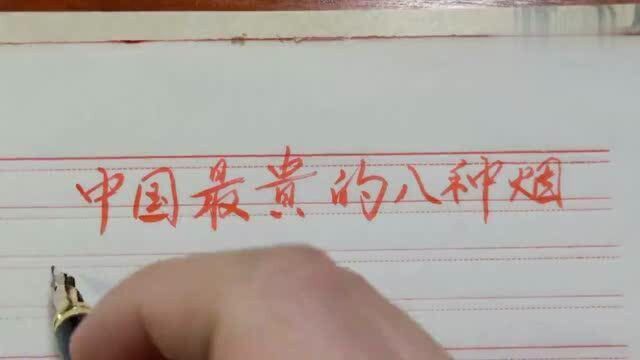 中国最貴的八种烟